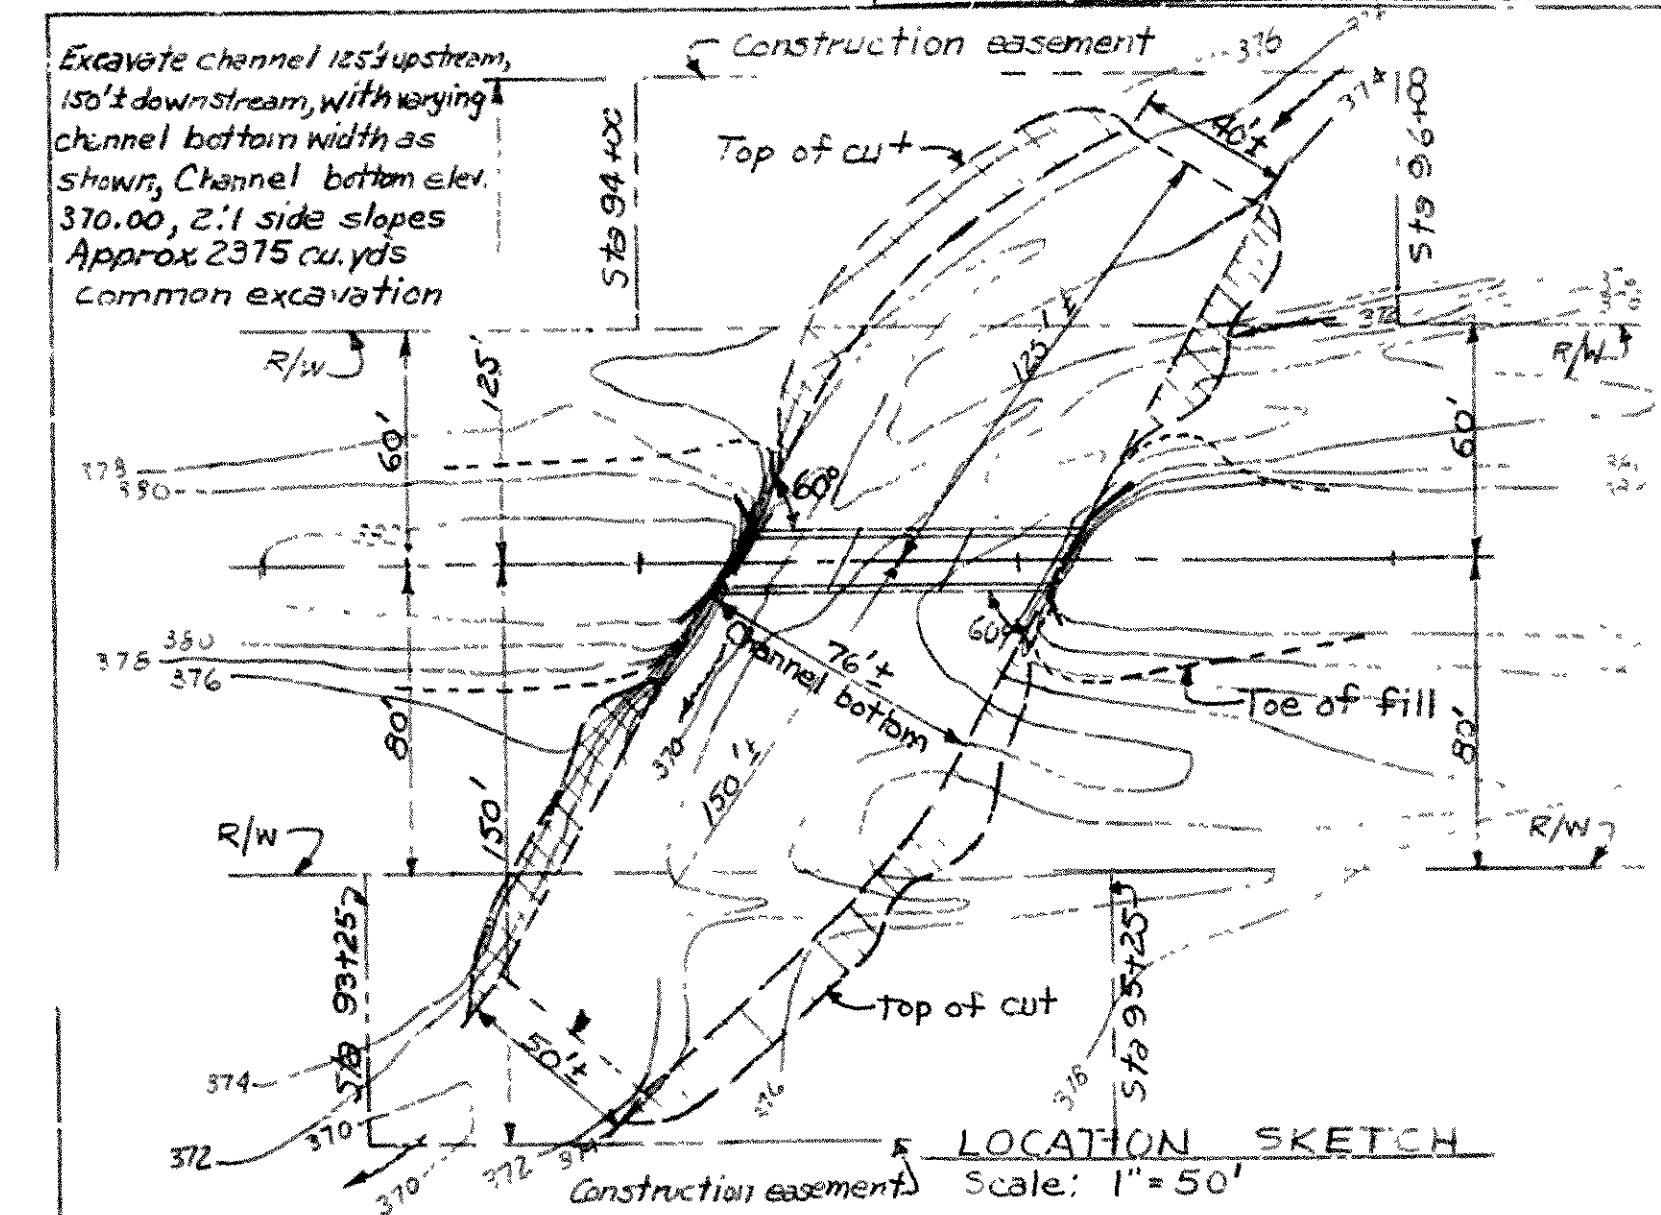 Excavate channel 125'± upstream,
150'± downstream, with varying
channel bottom width as
shown, Channel bottom elev.
370.00, 2:1 side slopes
Approx 2375 cu.yds
Common excavation
Construction easement
376
374
40'±
Top of cut
Sta 94+00
Sta 96+00
125'±
372
R/W
R/W
125'
60'
60'
378
380
60°
382
60°
380
378
376
76'±
Channel bottom
Toe of fill
80'
80'
370
150'±
150'
R/W
R/W
Sta 93+25
Sta 95+25
Top of cut
50'±
374
376
378
372
370
370
372
374
LOCATION SKETCH
Construction easement
Scale: 1" = 50'